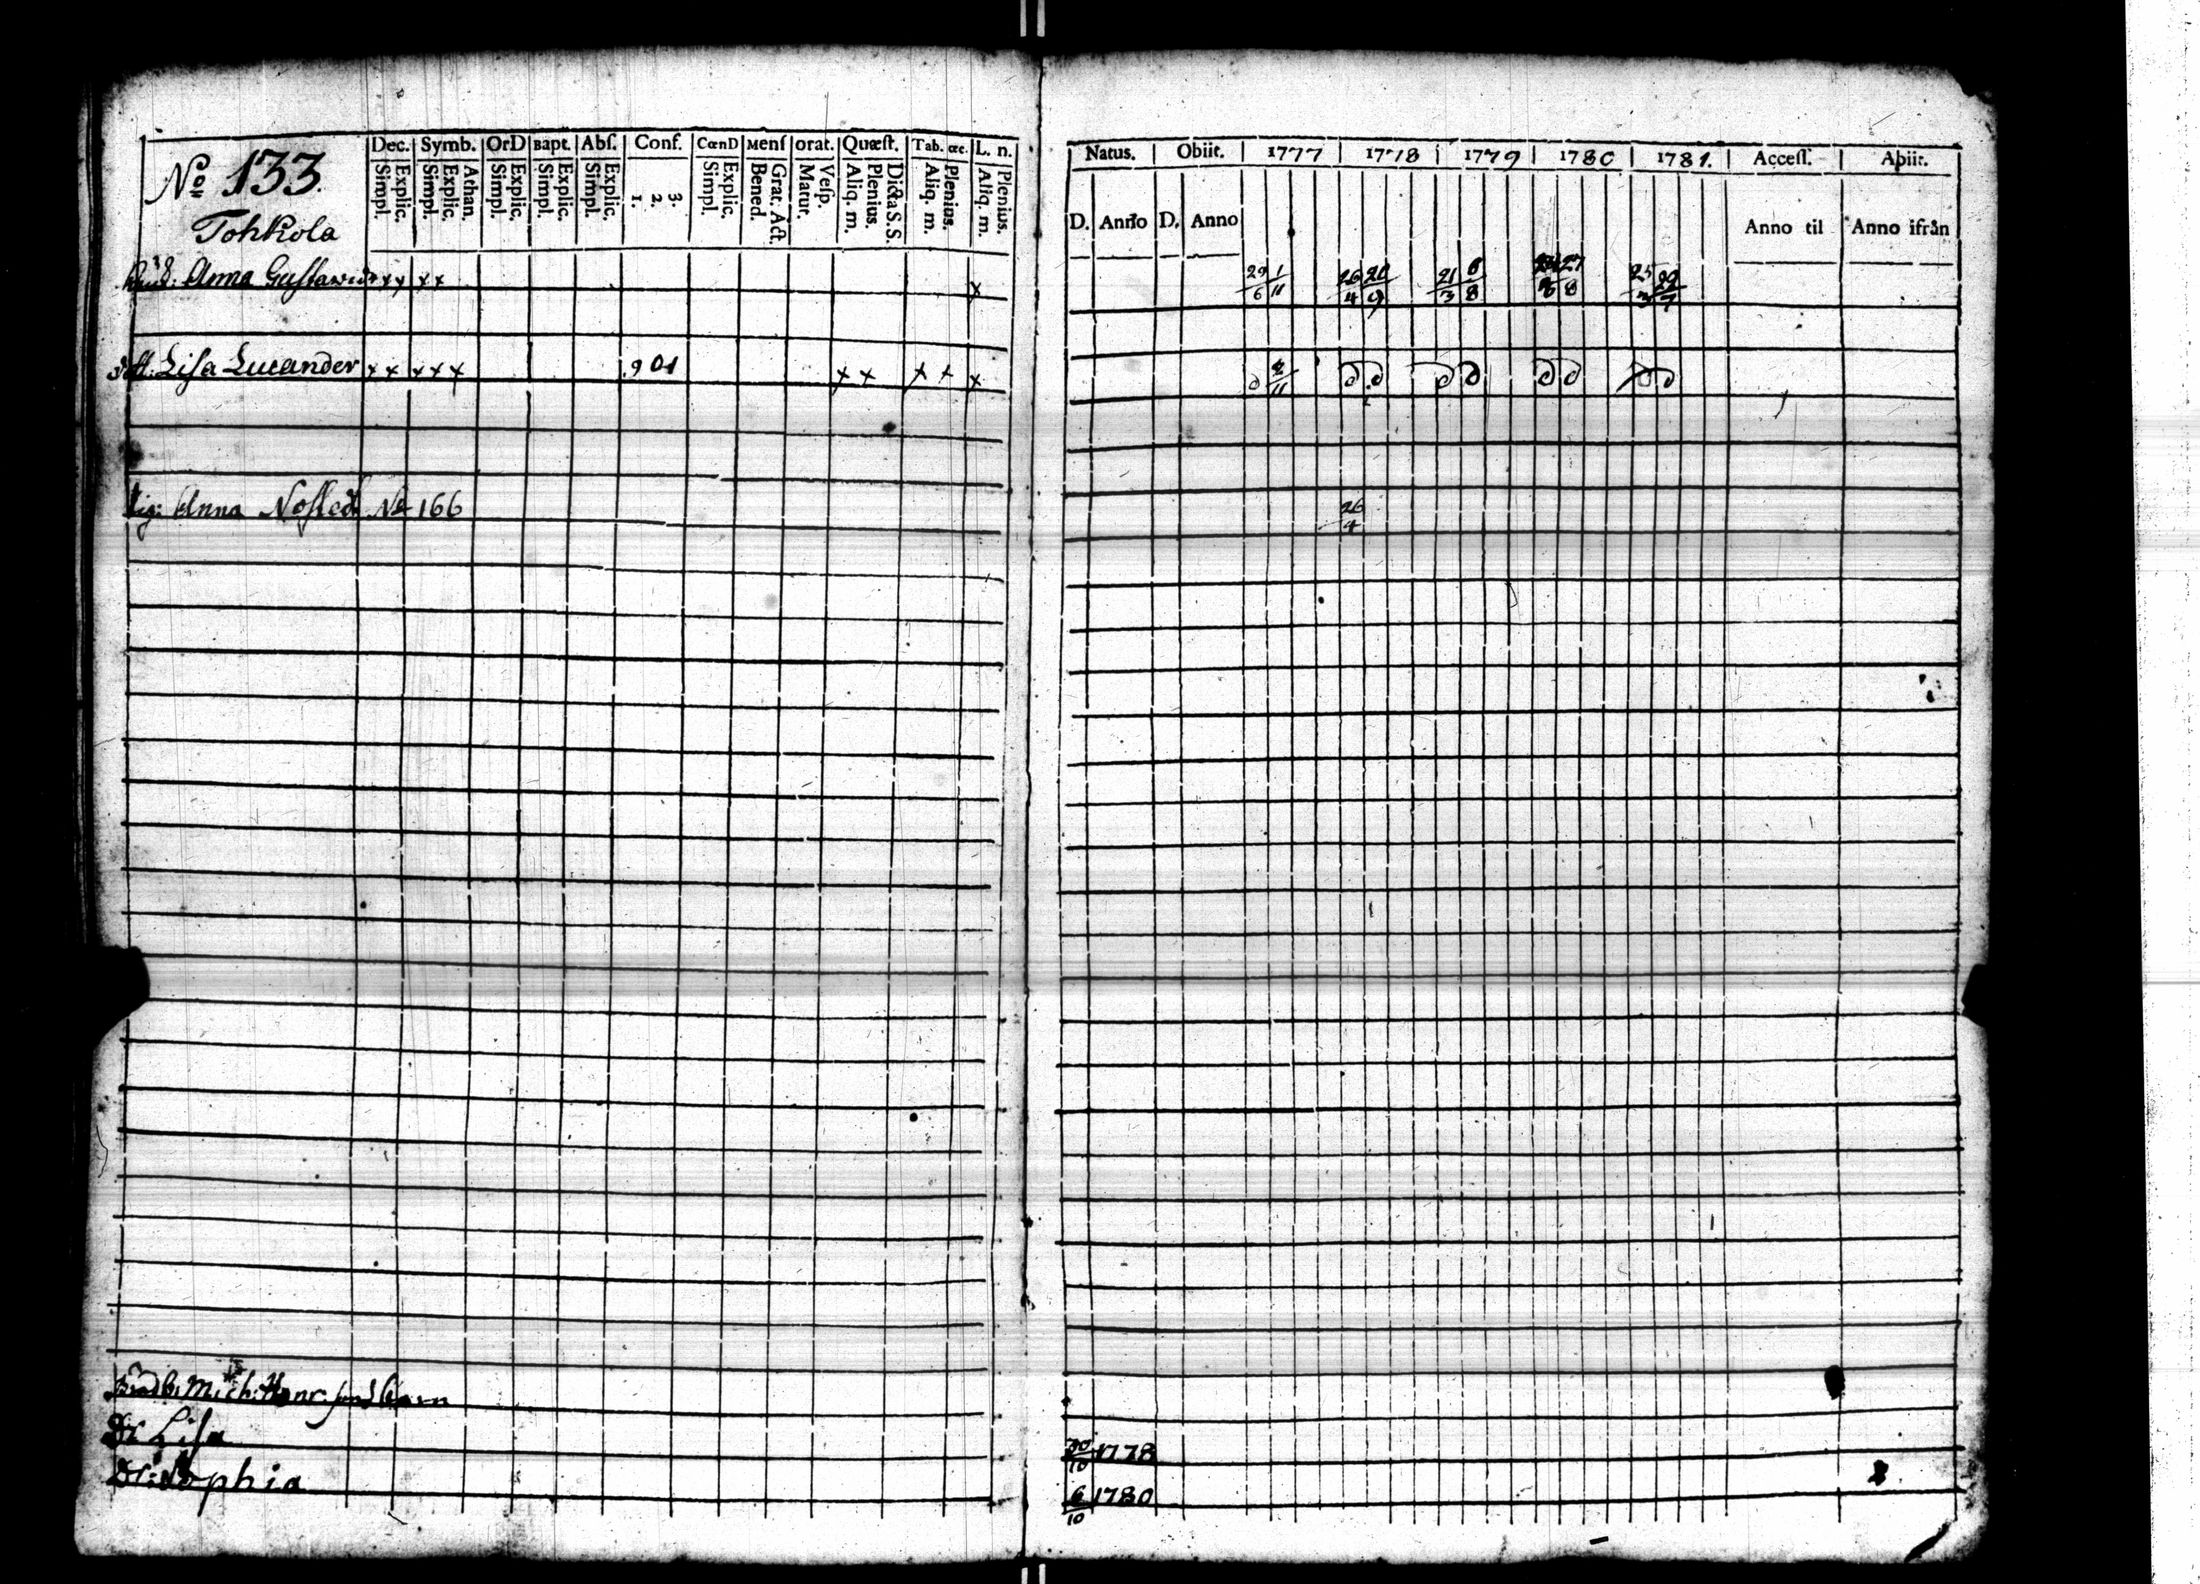 No 133.
Tohkola
Dec. Symb. OrD Bapt. Abſ. Conf. CœnD Menſ orat. Quæſt. Tab. œc. L. n.
Explic. Simpl. Athan. Explic. Simpl. Explic. Simpl. Explic. Simpl. Explic. Simpl. 3. 2. 1. Explic. Simpl. Grat. Act. Bened. Veſp. Matut. Dicta S.S. Plenius. Aliq. m. Plenius. Aliq. m. Plenius. Aliq. m.
Natus. Obiit. 1777 1778 1779 1780 1781. Acceſſ. Abiit.
D. Anno D. Anno Anno til Anno ifrån
Anna x x x x x 29/6 1/11 26/4 20/9 21/3 8/8 27/8 25/3 29/7
Liſa Lucander x x x x x 9 01 x x x x x
Anna No 166 26/4
Mich: Henr:
Dr Liſa 30/10 1778
Dr: Sophia 6/10 1780